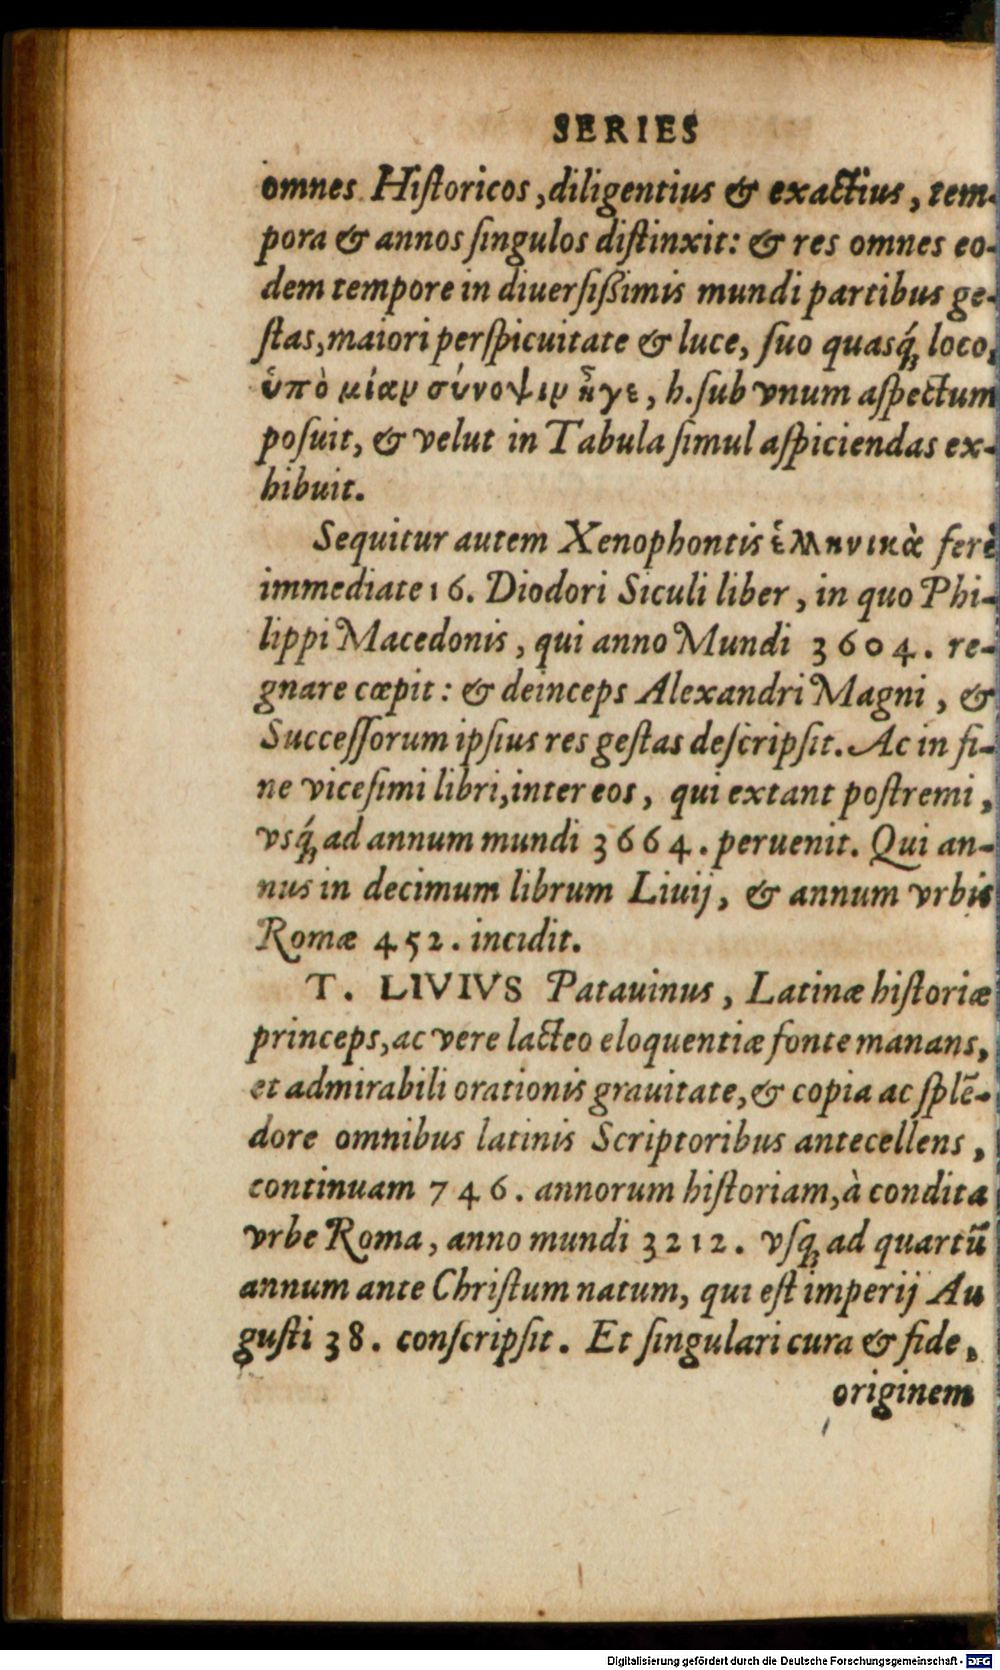 SERIES
omnes Hiſtoricos, diligentius & exactius, tem-
pora & annos ſingulos diſtinxit: & res omnes eo-
dem tempore in diuerſißimis mundi partibus ge-
ſtas, maiori perſpicuitate & luce, ſuo quasq́ꝫ loco,
ὑπὸ μίαν σύνοψιν ἦγε, h. ſub vnum aſpectum
poſuit, & velut in Tabula ſimul aſpiciendas ex-
hibuit.
Sequitur autem Xenophontis ἑλληνικὰ ferè
immediate 16. Diodori Siculi liber, in quo Phi-
lippi Macedonis, qui anno Mundi 3604. re-
gnare cœpit: & deinceps Alexandri Magni, &
Succeſſorum ipſius res geſtas deſcripſit. Ac in fi-
ne viceſimi libri, inter eos, qui extant poſtremi,
vsq́ꝫ ad annum mundi 3664. peruenit. Qui an-
nus in decimum librum Liuij, & annum vrbis
Romæ 452. incidit.
T. LIVIVS Patauinus, Latinæ hiſtoriæ
princeps, ac vere lacteo eloquentiæ fonte manans,
et admirabili orationis grauitate, & copia ac ſplē-
dore omnibus latinis Scriptoribus antecellens,
continuam 746. annorum hiſtoriam, à condita
vrbe Roma, anno mundi 3212. vſqꝫ ad quartū
annum ante Chriſtum natum, qui eſt imperij Au
guſti 38. conſcripſit. Et ſingulari cura & fide,
originem
Digitalisierung gefördert durch die Deutsche Forschungsgemeinschaft - DFG